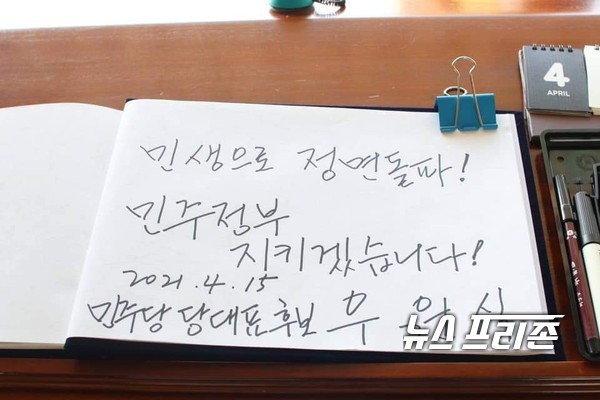 민생으로 정면돌파!
민주정부
지키겠습니다!
2021.4.15
민주당 당대표 후보 우 원 식
뉴스프리존
4
APRIL